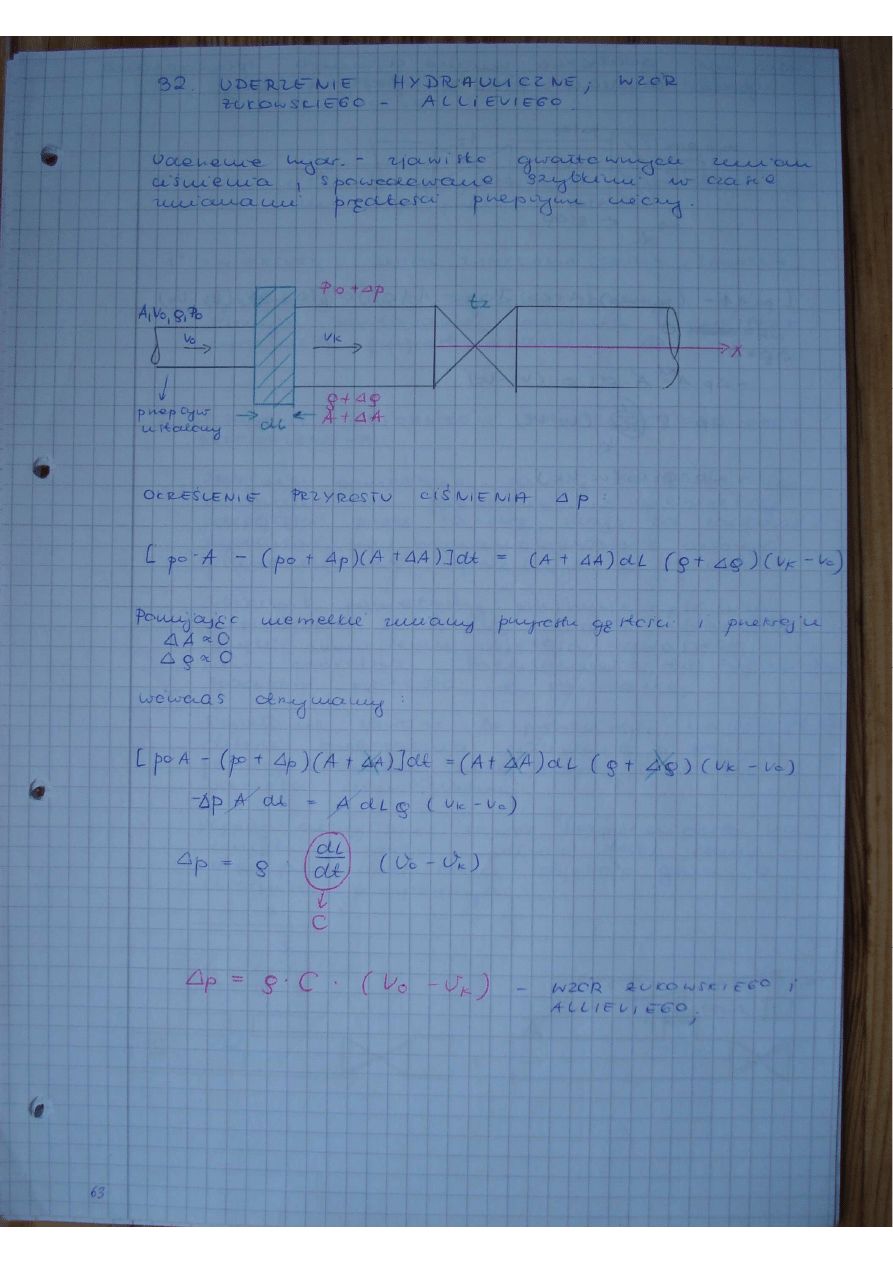 32. UDERZENIE HYDRAULICZNE, WZÓR
ŻUKOWSKIEGO - ALLIEVIEGO
Uderzenie hydr. - zjawisko gwałtownych zmian
ciśnienia, spowodowane szybkimi w czasie
zmianami prędkości przepływu cieczy.
Po + Δp
tz
A, Vo, ρ, Po
Vo
VK
x
ρ + Δρ
A + ΔA
przepływ
ustalony
dL
OKREŚLENIE PRZYROSTU CIŚNIENIA Δp :
[ po·A - (po + Δp)(A + ΔA)]dt = (A + ΔA)dL (ρ + Δρ)(VK - Vo)
Pomijając niewielkie zmiany przyrostu gęstości i przekroju
ΔA ∝ 0
Δρ ∝ 0
wówczas otrzymamy :
[ poA - (po + Δp)(A + ΔA)]dt = (A + ΔA)dL (ρ + Δρ)(VK - Vo)
-Δp A dt = A dL ρ (VK - Vo)
Δp = ρ · dL/dt (Vo - VK)
C
Δp = ρ · C · (Vo - VK) - WZÓR ŻUKOWSKIEGO i
ALLIEVIEGO;
63